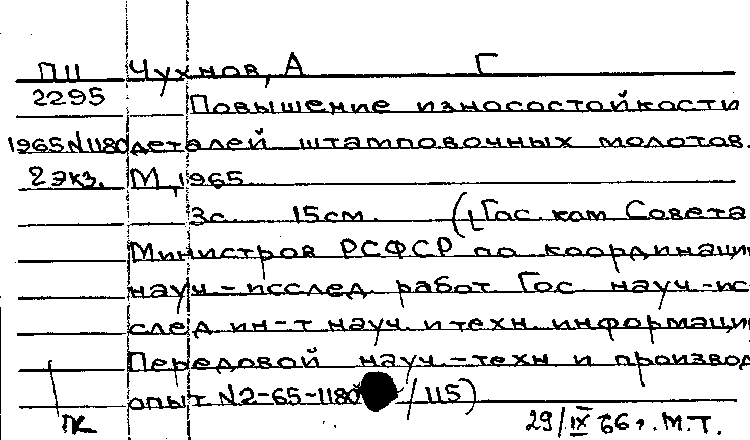 ПИ Чухнов, А Г
2295 Повышение износостойкости
1965 N1180 деталей штамповочных молотов.
2 экз. М, 1965
3с. 15см. ([Гос. ком Совета
Министров РСФСР по координаци
науч-исслед. работ. Гос науч-ис
след ин-т науч. и техн. информаци
Передовой науч.-техн и производ
опыт N2-65-1180 /115)
ПК 29/IX 66 г. М.Т.